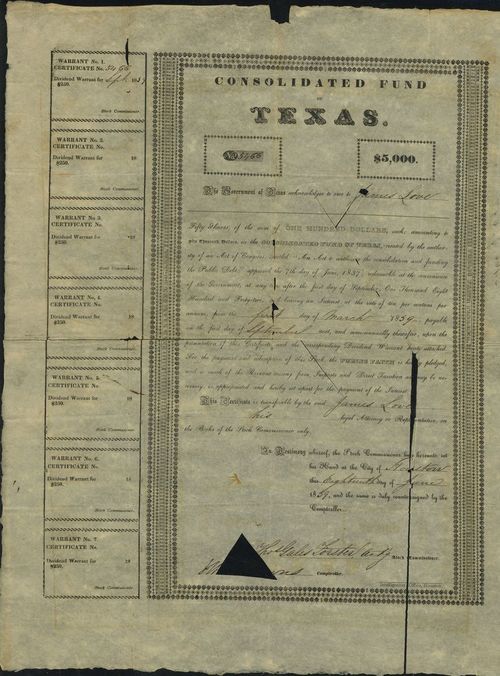 WARRANT No. 1.
CERTIFICATE No. 5466
Dividend Warrant for Sept. 1839
$250.
Stock Commissioner.
WARRANT No. 2.
CERTIFICATE No.
Dividend Warrant for 18
$250.
Stock Commissioner.
WARRANT No. 3.
CERTIFICATE No.
Dividend Warrant for 18
$250.
Stock Commissioner.
WARRANT No. 4.
CERTIFICATE No.
Dividend Warrant for 18
$250.
Stock Commissioner.
CERTIFICATE No.
Dividend Warrant for 18
$250.
Stock Commissioner.
WARRANT No. 6.
CERTIFICATE No.
Dividend Warrant for 18
$250.
Stock Commissioner.
WARRANT No. 7.
CERTIFICATE No.
Dividend Warrant for 18
$250.
Stock Commissioner.
CONSOLIDATED FUND
OF
TEXAS.
No. 5466
$5,000.
The Government of Texas acknowledges to owe to James Love
Fifty Shares of the sum of ONE HUNDRED DOLLARS, each, amounting to
Five Thousand Dollars, in the CONSOLIDATED FUND OF TEXAS, created by the author-
ity of an Act of Congress, entitled "An Act to authorize the consolidation and funding
the Public Debt," approved the 7th day of June, 1837; redeemable at the convenience
of the Government, at any time after the first day of September, One Thousand Eight
Hundred and Forty-two, bearing an Interest at the rate of ten per centum per
annum, from the first day of March 1839, payable
on the first day of September next, and semi-annually thereafter, upon the
presentation of this Certificate, and the corresponding Dividend Warrant hereto attached.
For the payment and redemption of this Stock, the PUBLIC FAITH is hereby pledged,
and so much of the Revenue arising from Imposts and Direct Taxation as may be ne-
cessary, is appropriated and hereby set apart for the payment of the Interest.
This Certificate is transferable by the said James Love
his legal Attorney or Representative, on
the Books of the Stock Commissioner only.
In Testimony whereof, the Stock Commissioner has hereunto set
his Hand at the City of Houston
this Eighteenth day of June
1839, and the same is duly countersigned by the
Comptroller.
Stock Commissioner.
Comptroller.